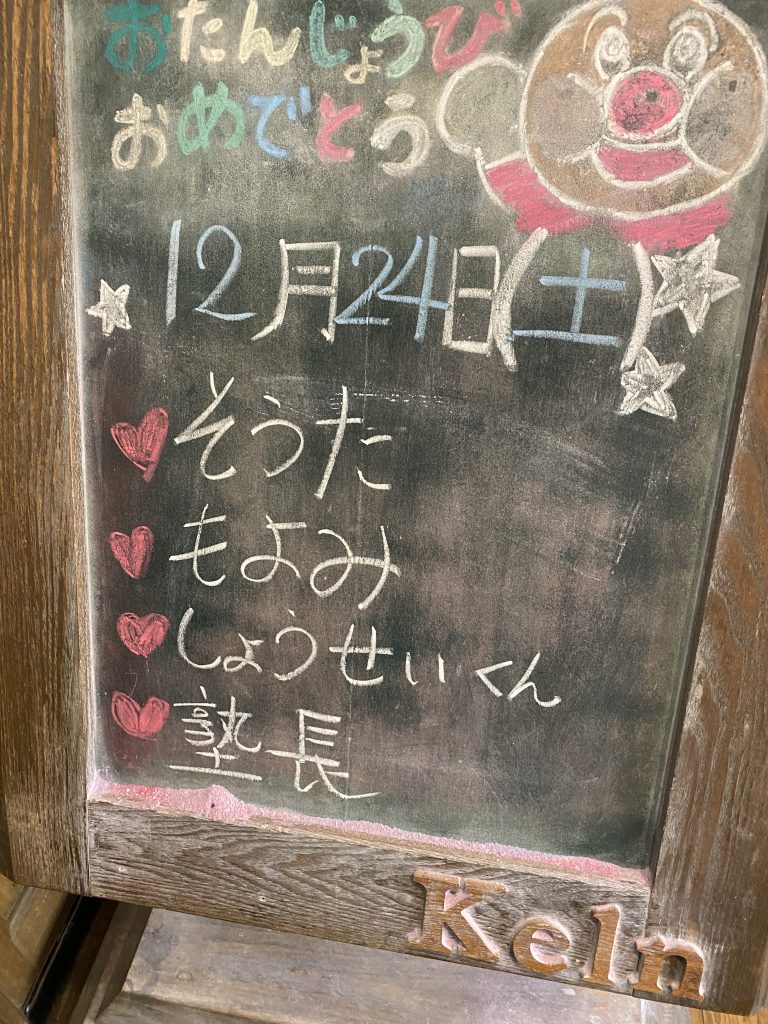 おたんじょうび
おめでとう
12月24日(土)
そうた
もよみ
しょうせいくん
塾長
Keln